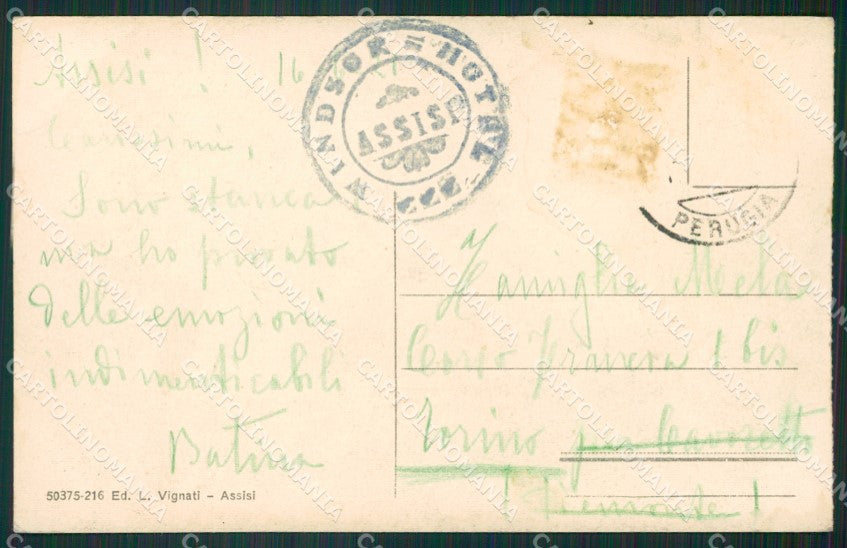 Assisi ! 16
Carissimi,
Sono stanca
ma ho provato
delle emozioni
indimenticabili
WINDSOR = HOTEL
ASSISI
PERUGIA
Famiglia Mela
Corso 1 bis
Torino per Cavoretto
( Piemonte )
50375-216 Ed. L. Vignati - Assisi
CARTOLINOMANIA